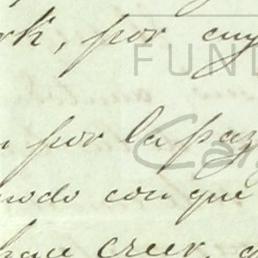 rk, por cuy
FUN
por la paz
modo con que
creer,